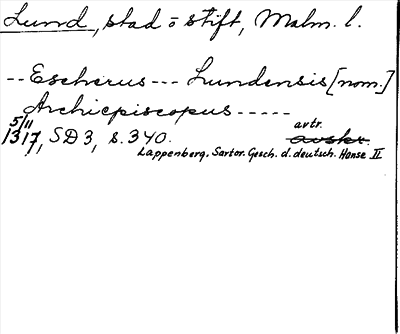 Lund, stad o stift, Malm. l.
-- Escherus --- Lundensis [nom.]
Archiepiscopus -----
5/11 avtr.
1317, SD 3, s. 340. avskr.
Lappenberg. Sartor. Gesch. d. deutsch. Hanse II